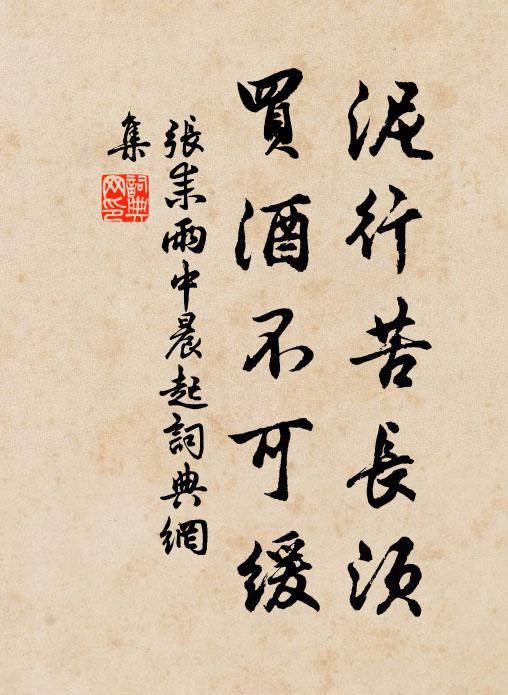 泥行苦長須
買酒不可緩
張耒雨中晨起詞典網
集
詞典
网印